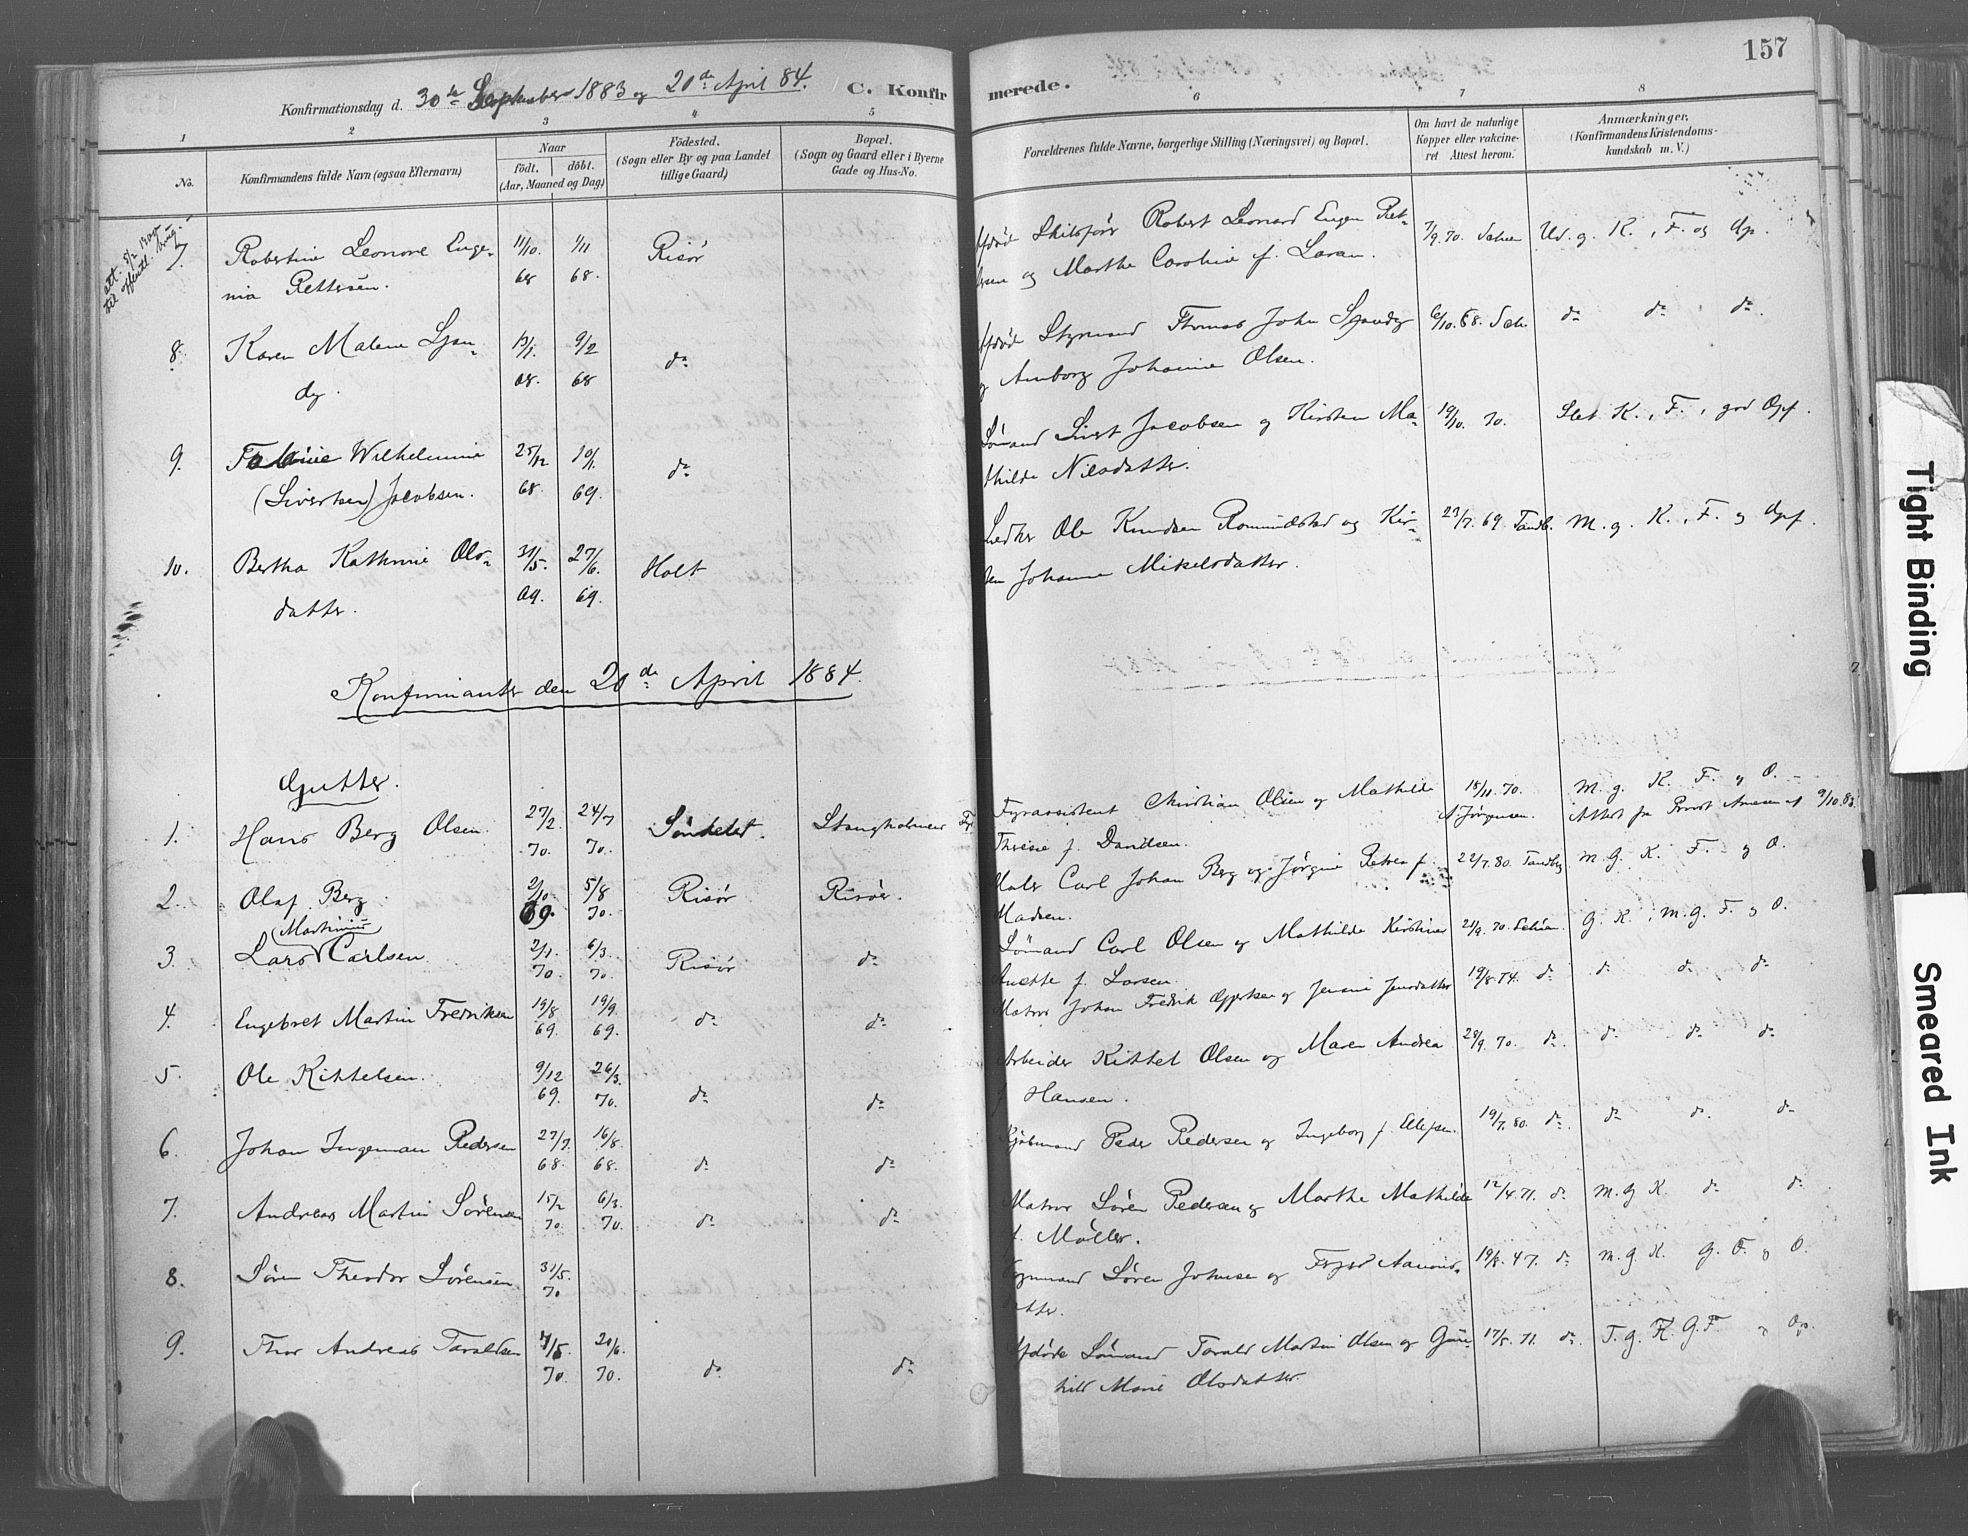 157
Konfirmationsdag d. 30te September 1883 og 20de April 84. C. Konfirmerede.
1 2 3 4 5 6 7 8
No.
Konfirmandens fulde Navn (ogsaa Efternavn)
Naar
født. døbt.
(Aar, Maaned og Dag)
Födested.
(Sogn eller By og paa Landet
tillige Gaard)
Bopæl.
(Sogn og Gaard eller i Byerne
Gade og Hus-No.
Forældrenes fulde Navne, borgerlige Stilling (Næringsvei) og Bopæl.
Om havt de naturlige
Kopper eller vakcine-
ret Attest herom.
Anmærkninger.
(Konfirmandens Kristendoms-
kundskab m. V.)
7. Robertine Leonore Euge- 11/10. 1/11 Risör Skibsför Robert Leonard Eugen Pet- 7/9. 70. Ud. g. K., F. og Op.
nia Pettersen. 68 68. og Marthe Caroline f. Laran.
8. Karen Malene Ljan- 13/1. 9/2 do Styrmand Thomas John 6/10. 68. do do do
dg. 68. 68 Johanne Olsen.
9. Wilhelmine 25/12 10/1. do Sivert Jacobsen og Kirsten Ma- 19/10. 70. Slet K., F., god Opf.
(Sivertsen) Jacobsen. 68. 69. thilde Nilsdatter.
10. Bertha Kathrine Ols- 31/5. 27/6. Holt Ole Knudsen Romundstad og Kir- 23/7. 69. Tandb. M. g. K., F. og Opf.
datter. 69. 69. sten Johanne Mikelsdatter.
Konfirmanter den 20de April 1884.
Gutter.
1. Hans Berg Olsen 27/2. 24/7 Söndeled. Stangholmens Fyr Fyrassistent Christian Olsen og Mathilde 18/11. 70. M. g. K. F. og O.
70. 70. Therese f. Davidsen. A. Jørgensen. Attest fra Provst 9/10. 83.
2. Olaf Berg 2/10. 5/8 Risör Risöer. Maler Carl Johan Berg og Jørgine Petrea f. 22/7. 80. Tandberg M. G. K. F. og O.
69. 70. Madsen.
(Martinius)
3. Lars Carlsen 2/1. 6/3. Risör do Sömand Carl Olsen og Mathilde Kirstine 21/9. 70. G. K., M. G. F. og O.
70. 70. Anette f. Larsen.
4. Engebret Martin Fredriksen 19/8 19/9. do do Matros Johan Fredrik og Jensine Jensdatter 19/8. 74. do do do do
69. 69.
5. Ole Kittelsen. 9/12 26/3. do do Arbeider Kittel Olsen og Maren Andrea 28/9. 70 do do do do
69. 70. f. Hansen.
6. Johan Ingeman Pedersen 27/7. 16/8. do do Kjøbmand Peder Pedersen og Ingeborg f. 19/7. 80. do do do do
68. 68.
7. Andreas Martin Sörensen 15/2 6/3. do do Matros Sören Pedersen og Marthe Mathilde 12/4. 71. do M. G K. do do
70. 70. f. Møller.
8. Sören Theodor Sörensen. 31/5. Sören Johnsen og 19/8. 47. do M. g K. G. F. og O.
70 datter.
9. Thor Andreas Taraldsen 7/5. 20/6. do do Afdøde Sömand Tarald Martin Olsen og Gun- 17/5. 71. do T. g. K. G. F. og Op.
70. 70. hild Marie Olsdatter.
Tight Binding
Smeared Ink